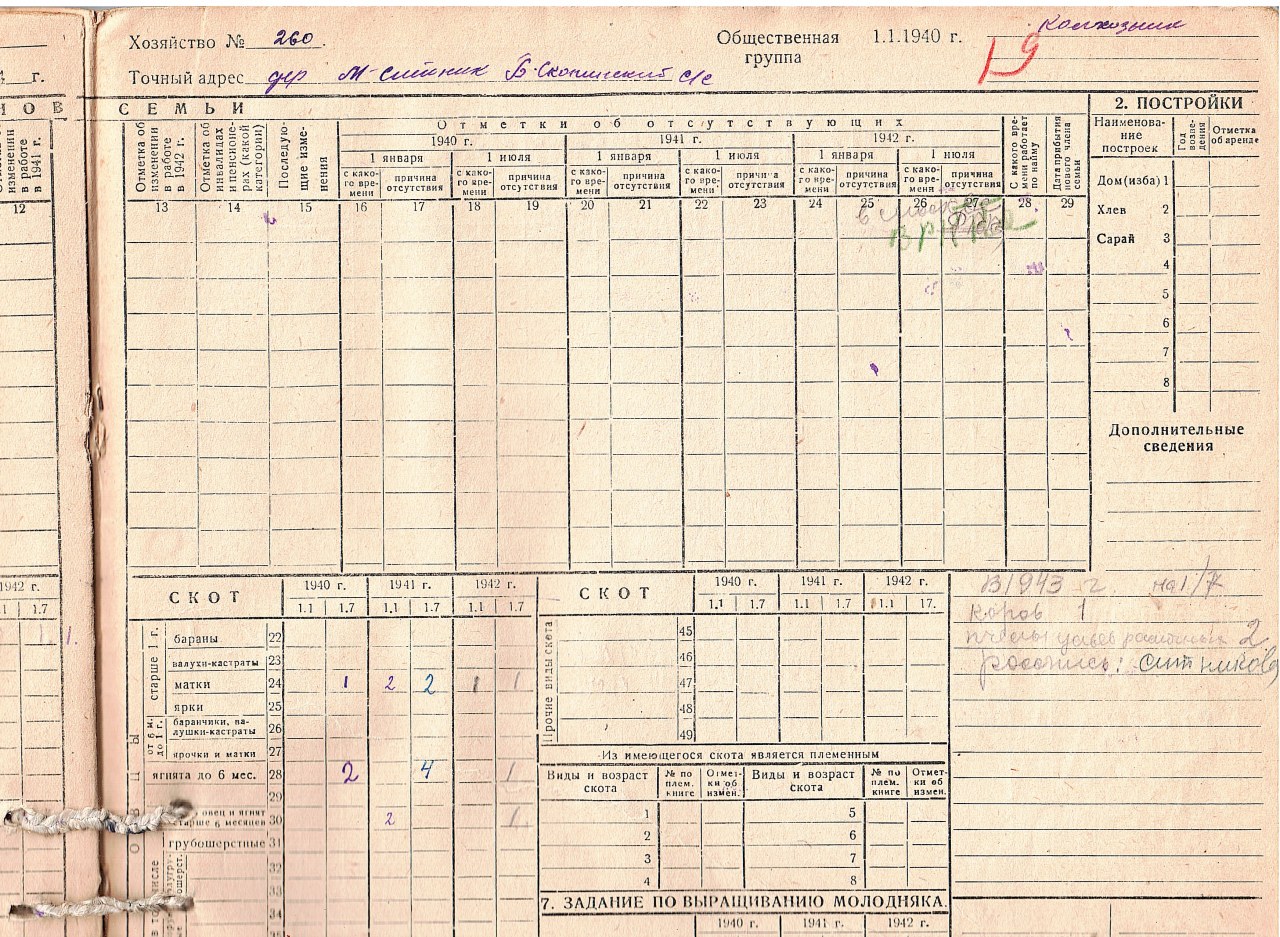 Хозяйство № 260.
Общественная группа 1.1.1940 г. Колхозник
19
Точный адрес дер М-Ситник Б-Скопинский с/с
г.
НОВ СЕМЬИ
2. ПОСТРОЙКИ
изменении в работе в 1941 г.
12
Отметка об изменении в работе в 1942 г.
Отметка об инвалидах и пенсионерах (какой категории)
Последующие изменения
Отметки об отсутствующих
1940 г. 1941 г. 1942 г.
1 января 1 июля 1 января 1 июля 1 января 1 июля
с како-го вре-мени причина отсутствия с како-го вре-мени причина отсутствия с како-го вре-мени причина отсутствия с како-го вре-мени причина отсутствия с како-го вре-мени причина отсутствия с како-го вре-мени причина отсутствия
С какого вре-мени работает по найму
Дата прибытия нового члена семьи
13 14 15 16 17 18 19 20 21 22 23 24 25 26 27 28 29
Наименова-ние построек
Год возве-дения
Отметка об аренде
Дом(изба) 1
Хлев 2
Сарай 3
4
5
6
7
8
Дополнительные сведения
В 1943 г. на 1/7
коров 1
пчелы ульев рамочных 2
роспись: Ситникова
1942 г.
.1 1.7
1 1.
СКОТ
1940 г. 1941 г. 1942 г.
1.1 1.7 1.1 1.7 1.1 1.7
старше 1 г.
бараны 22
валухи-кастраты 23
матки 24 1 2 2 1 1
ярки 25
от 6 м. до 1 г.
баранчики, ва-лушки-кастраты 26
ярочки и матки 27
ягнята до 6 мес. 28 2 4 1
29
овец и ягнят старше 6 месяцев 30 2 1
грубошерстные 31
32
33
34
СКОТ
1940 г. 1941 г. 1942 г.
1.1 1.7 1.1 1.7 1.1 17.
Прочие виды скота
45
46
47
48
49
Из имеющегося скота является племенным
Виды и возраст скота № по плем. книге Отмет-ки об измен. Виды и возраст скота № по плем. книге Отмет-ки об измен.
1 5
2 6
3 7
4 8
7. ЗАДАНИЕ ПО ВЫРАЩИВАНИЮ МОЛОДНЯКА.
1940 г. 1941 г. 1942 г.